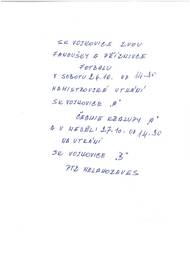 SK VOJKOVICE ZVOU
FANOUŠKY A PŘÍZNIVCE
FOTBALU
V SOBOTU 26.10. OD 14.30
NA MISTROVSKÉ UTKÁNÍ
SK VOJKOVICE "A"
ČECHIE KRALUPY "A"
A V NEDĚLI 27.10. OD 14.30
NA UTKÁNÍ
SK VOJKOVICE "B"
NELAHOZEVES